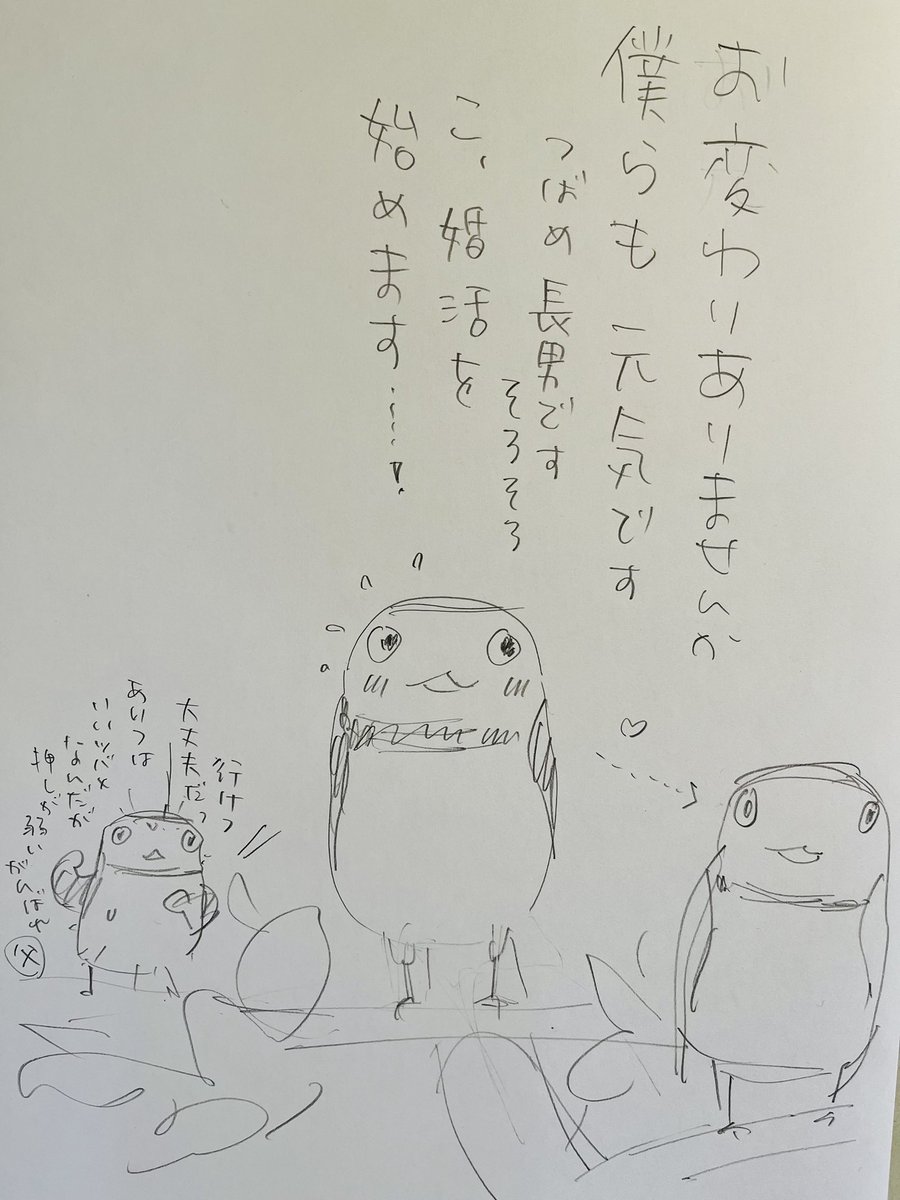 お変わりありませんか
僕らも元気です
つばめ長男です
そろそろ
こ、婚活を
始めます……!
行けっ
大丈夫だっ
あいつは
いいツバメ
なんだが
押しが弱いがんばれ
父